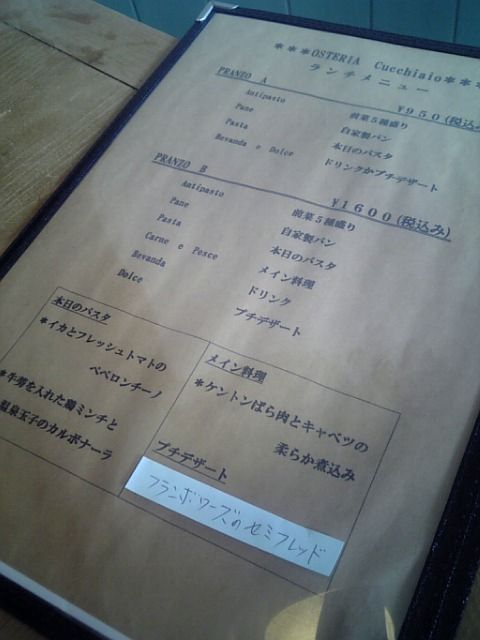 ***OSTERIA Cucchiaio***
ランチメニュー
PRANZO A ¥950(税込み
Antipasto 前菜5種盛り
Pane 自家製パン
Pasta 本日のパスタ
Bevanda e Dolce ドリンクかプチデザート
PRANZO B ¥1600(税込み)
Antipasto 前菜5種盛り
Pane 自家製パン
Pasta 本日のパスタ
Carne e Pesce メイン料理
Bevanda ドリンク
Dolce プチデザート
本日のパスタ
*イカとフレッシュトマトの
ペペロンチーノ
*牛蒡を入れた鶏ミンチと
温泉玉子のカルボナーラ
メイン料理
*ケントンばら肉とキャベツの
柔らか煮込み
プチデザート
フランボワーズのセミフレッド